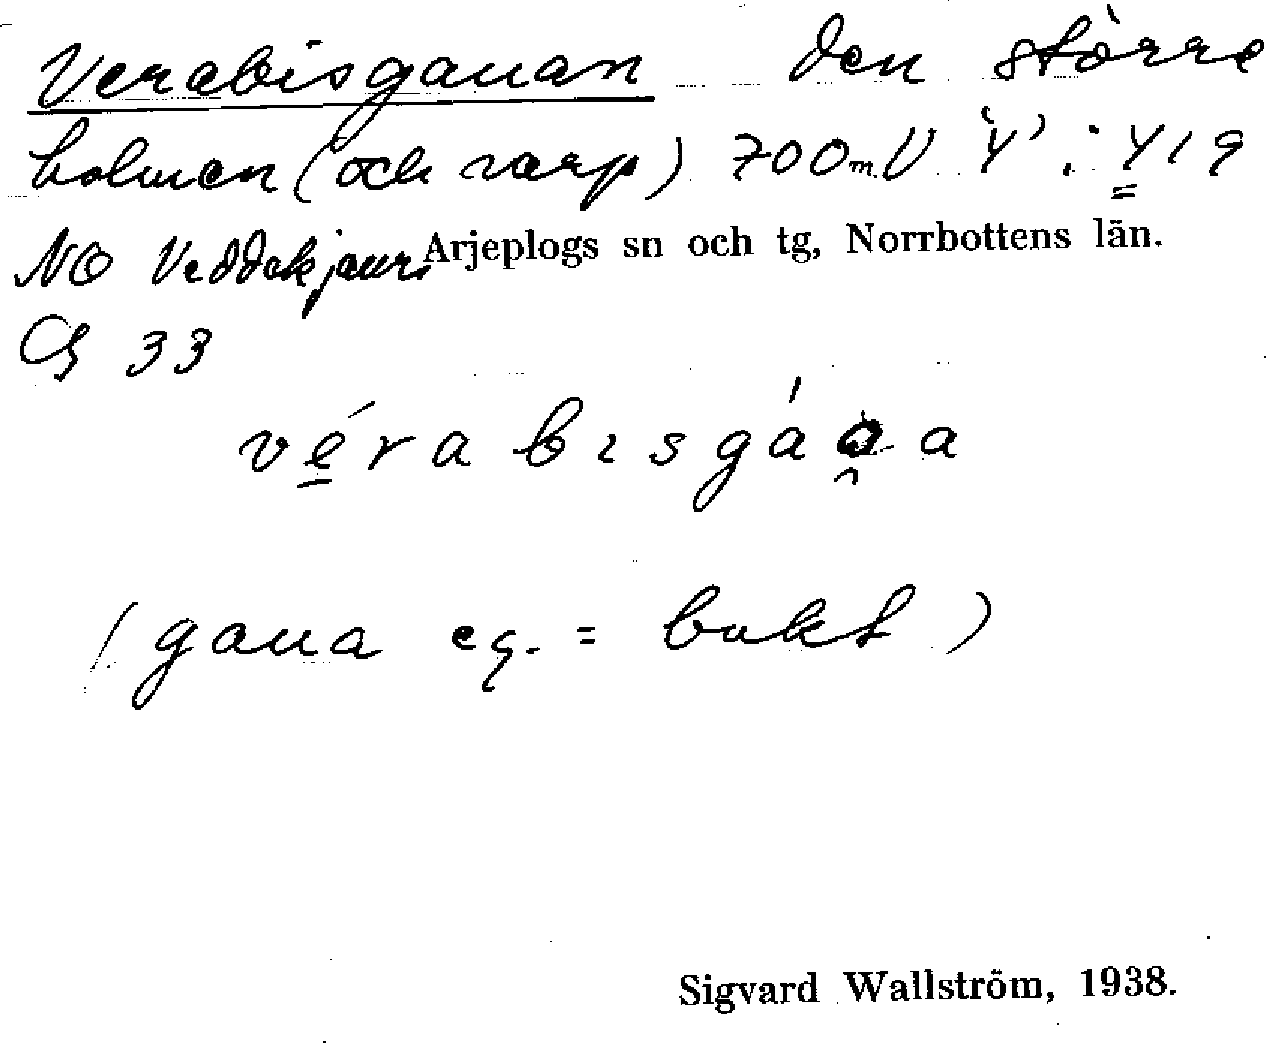 Verabisgauan den större
holmen (och varp) 700 m V 'Y' i Y 19
NO Veddekjaur. Arjeplogs sn och tg, Norrbottens län.
G 33
vérabısgáa
(gaua eg. = bukt)
Sigvard Wallström, 1938.